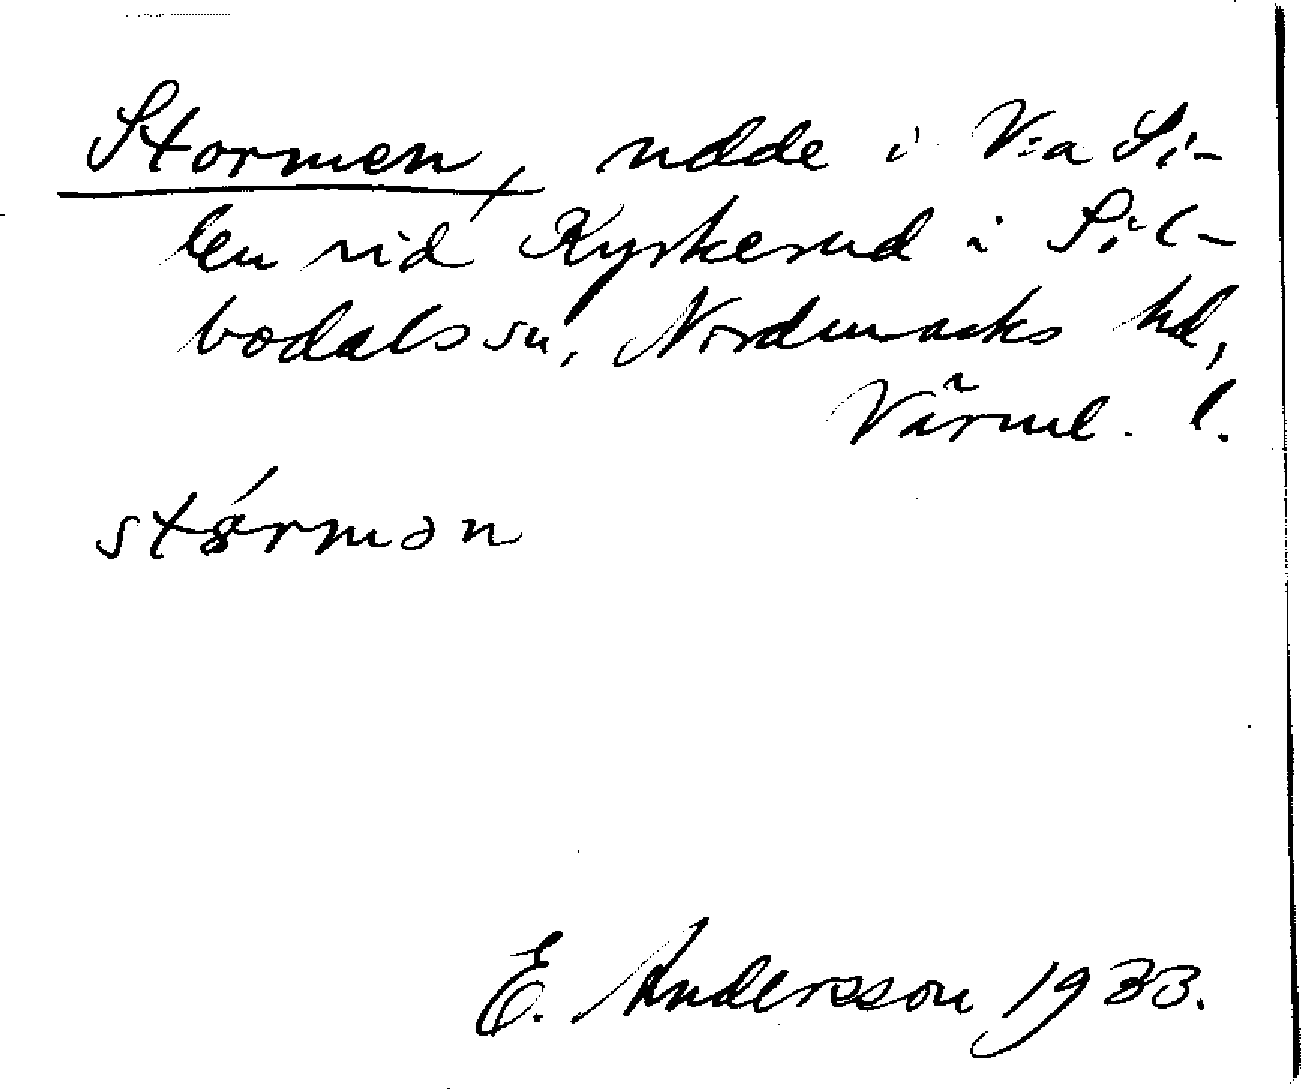 Stormen, udde i V:a Si-
len vid Kyrkerud i Sil-
bodals sn, Nordmarks hd,
Värml. l.
stórmən
E. Andersson 1933.